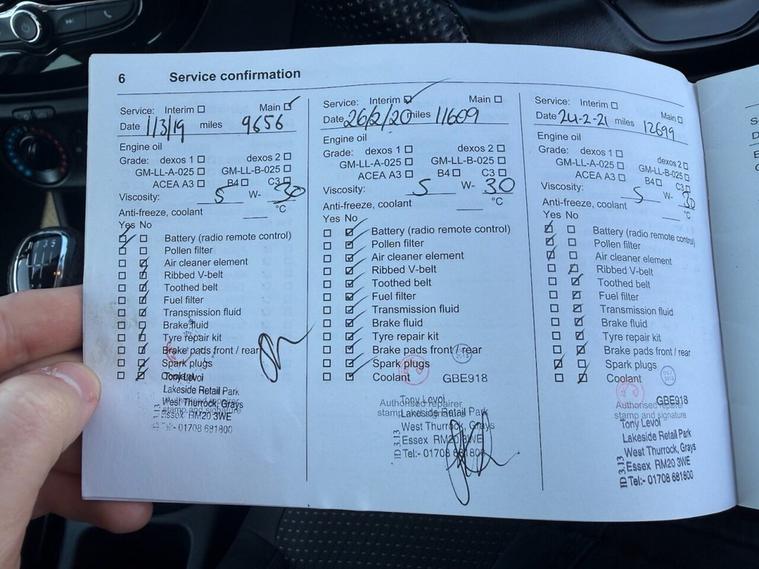 6 Service confirmation
Service: Interim Main
Date 1/3/19 miles 9656
Engine oil
Grade: dexos 1 dexos 2
GM-LL-A-025 GM-LL-B-025
ACEA A3 B4 C3
Viscosity: 5 W- 30
Anti-freeze, coolant °C
Yes No
Battery (radio remote control)
Pollen filter
Air cleaner element
Ribbed V-belt
Toothed belt
Fuel filter
Transmission fluid
Brake fluid
Tyre repair kit
Brake pads front / rear
Spark plugs
Coolant
Tony Levoi
Lakeside Retail Park
West Thurrock, Grays
Essex RM20 3WE
01708 681600
Service: Interim Main
Date 26/2/20 miles 11609
Engine oil
Grade: dexos 1 dexos 2
GM-LL-A-025 GM-LL-B-025
ACEA A3 B4 C3
Viscosity: 5 W- 30
Anti-freeze, coolant °C
Yes No
Battery (radio remote control)
Pollen filter
Air cleaner element
Ribbed V-belt
Toothed belt
Fuel filter
Transmission fluid
Brake fluid
Tyre repair kit
Brake pads front / rear
Spark plugs
Coolant GBE918
Authorised repairer
Tony Levoi
Lakeside Retail Park
West Thurrock, Grays
Essex RM20 3WE
ID 3.13
Tel:- 01708 681600
Service: Interim Main
Date 24-2-21 miles 12699
Engine oil
Grade: dexos 1 dexos 2
GM-LL-A-025 GM-LL-B-025
ACEA A3 B4 C3
Viscosity: 5 W- 30
Anti-freeze, coolant °C
Yes No
Battery (radio remote control)
Pollen filter
Air cleaner element
Ribbed V-belt
Toothed belt
Fuel filter
Transmission fluid
Brake fluid
Tyre repair kit
Brake pads front / rear
Spark plugs
Coolant
GBE918
Authorised repairer
stamp and signature
Tony Levoi
Lakeside Retail Park
West Thurrock, Grays
Essex RM20 3WE
ID 3.13
Tel:- 01708 681600